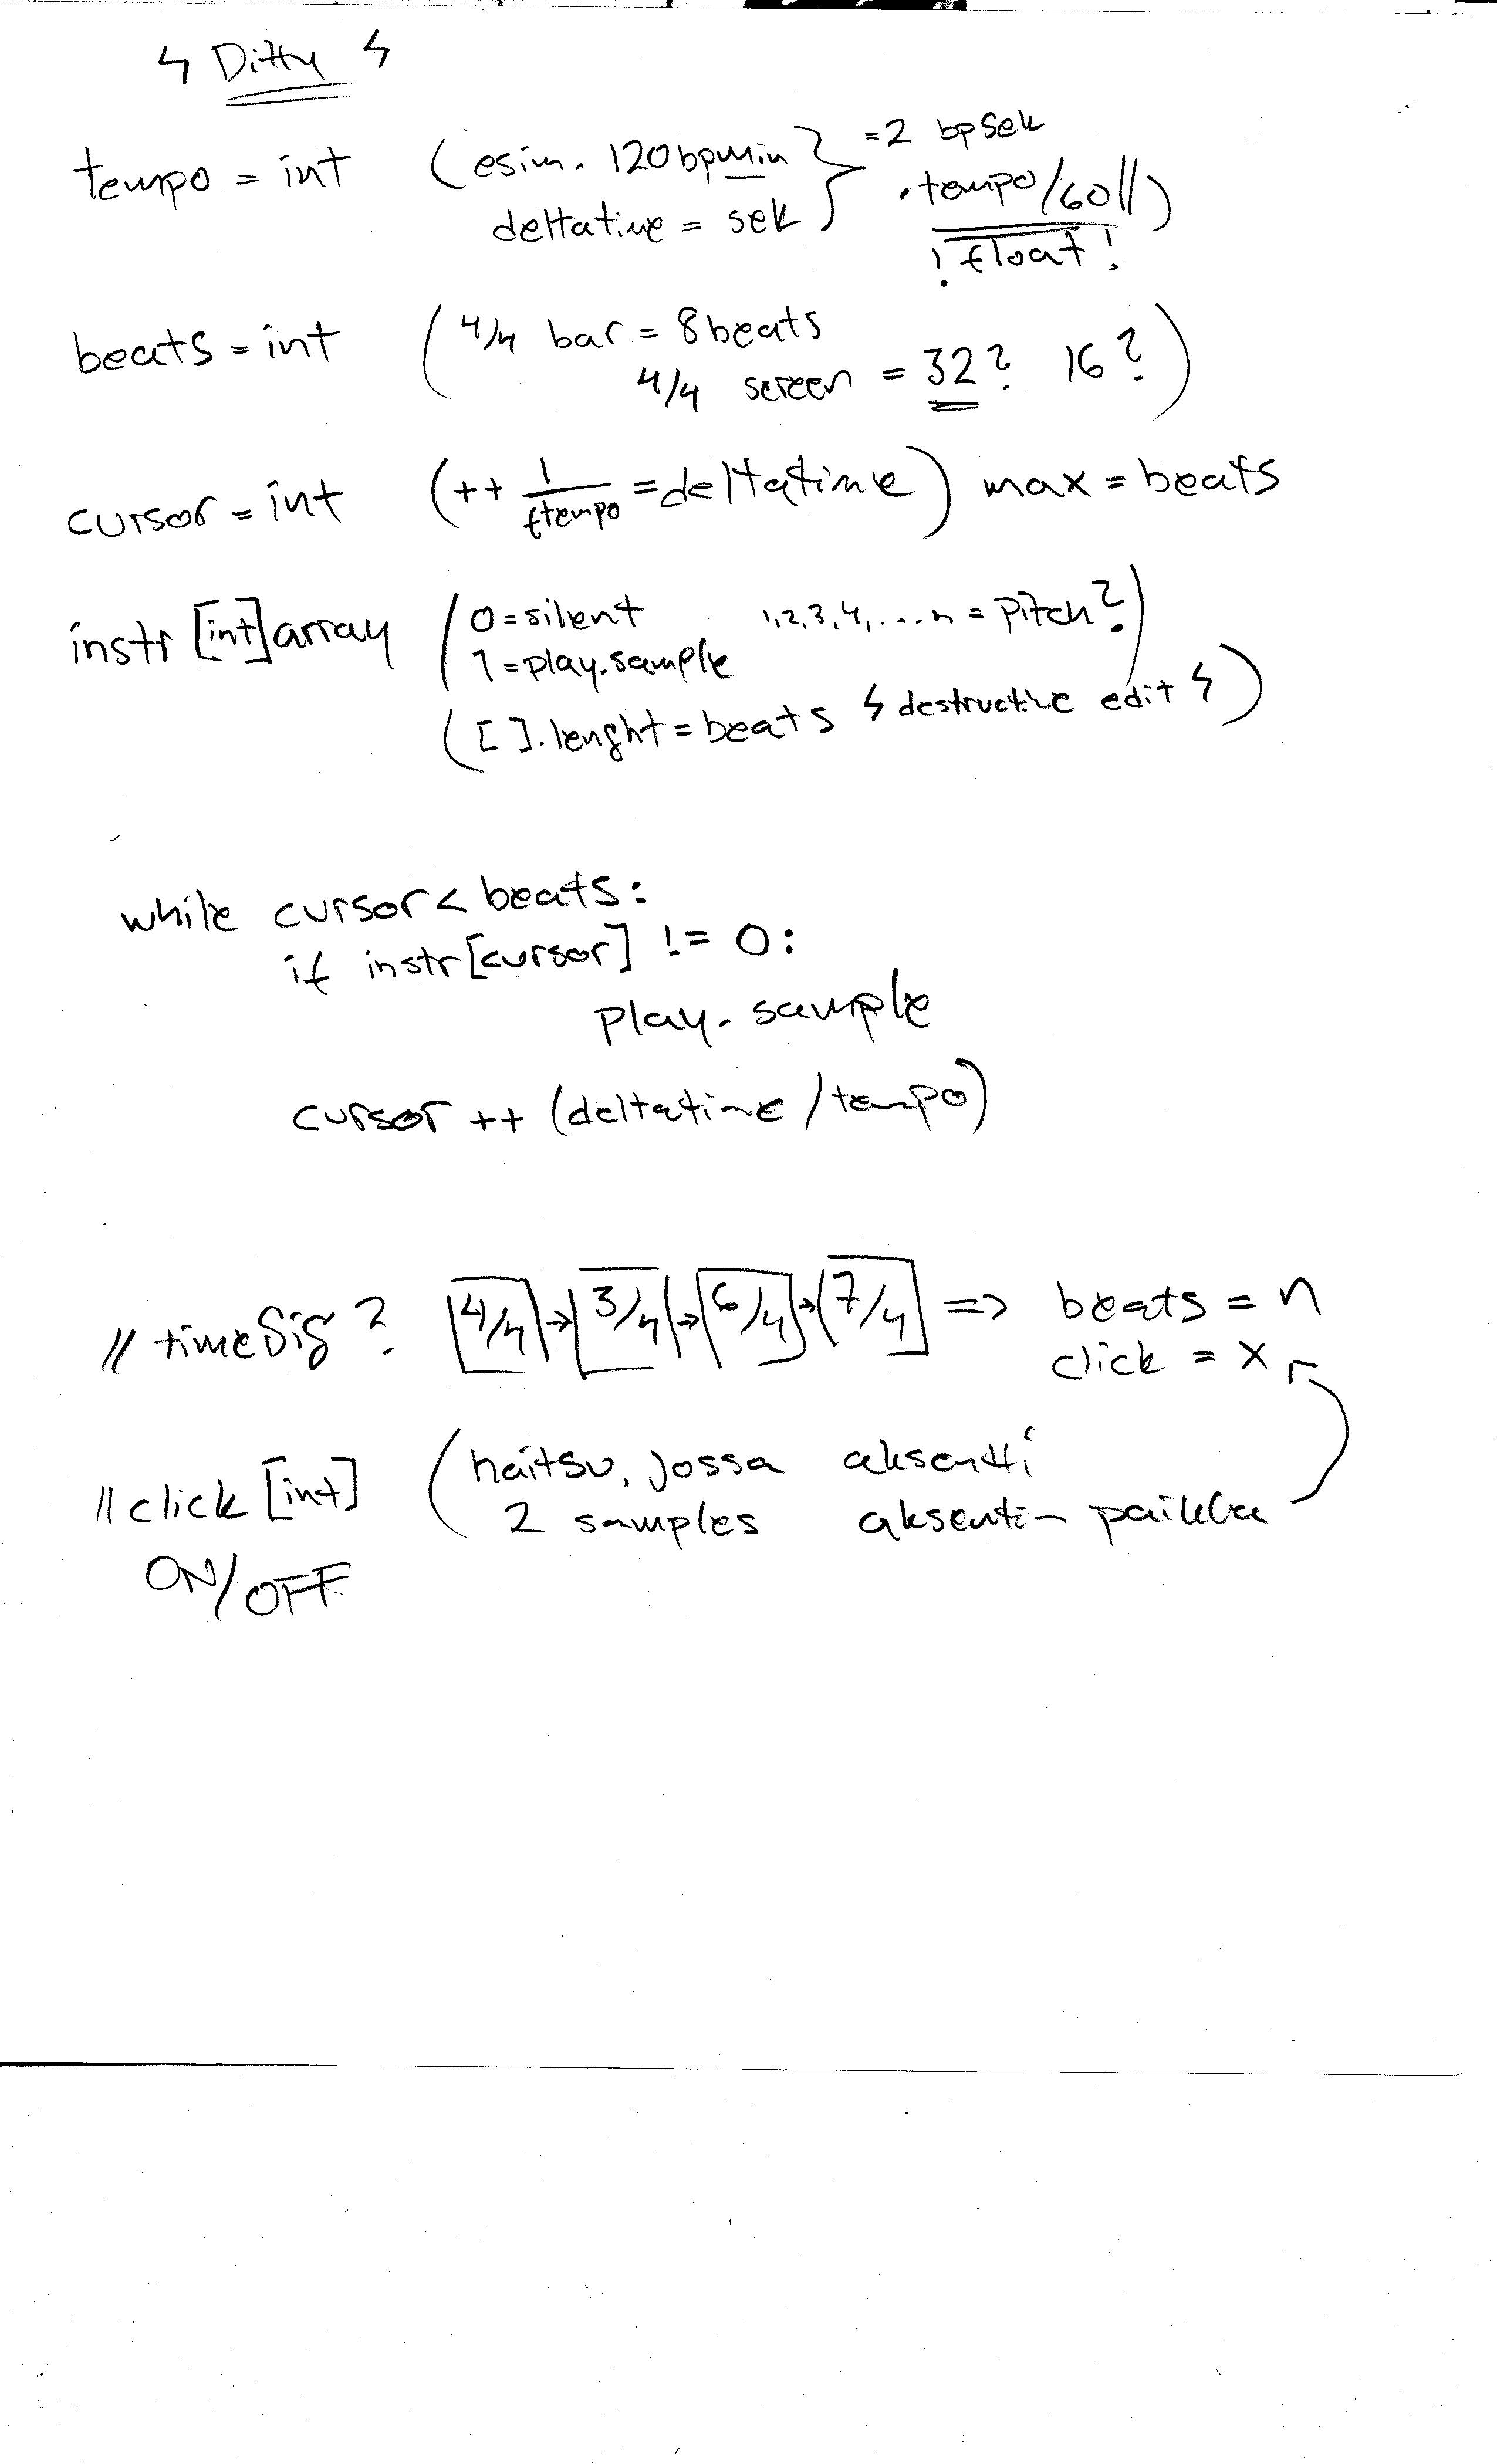 ϟ Ditty ϟ
tempo = int (esim. 120bpmin } = 2 bpsek
deltatime = sek } · tempo/60 ||)
! float !
beats = int (4/4 bar = 8 beats
4/4 screen = 32? 16?)
cursor = int (++ 1/ftempo = deltatime) max = beats
instr [int] array (0 = silent 1,2,3,4,...n = pitch?)
1 = play.sample
([ ].lenght = beats ϟ destructive edit ϟ)
while cursor < beats:
if instr[cursor] != 0:
play.sample
cursor ++ (deltatime / tempo)
// timeSig? [4/4] → [3/4] → [6/4] → [7/4] => beats = n
click = x
// click [int] (haitsu, jossa aksentti
2 samples aksentin paikka
ON/OFF